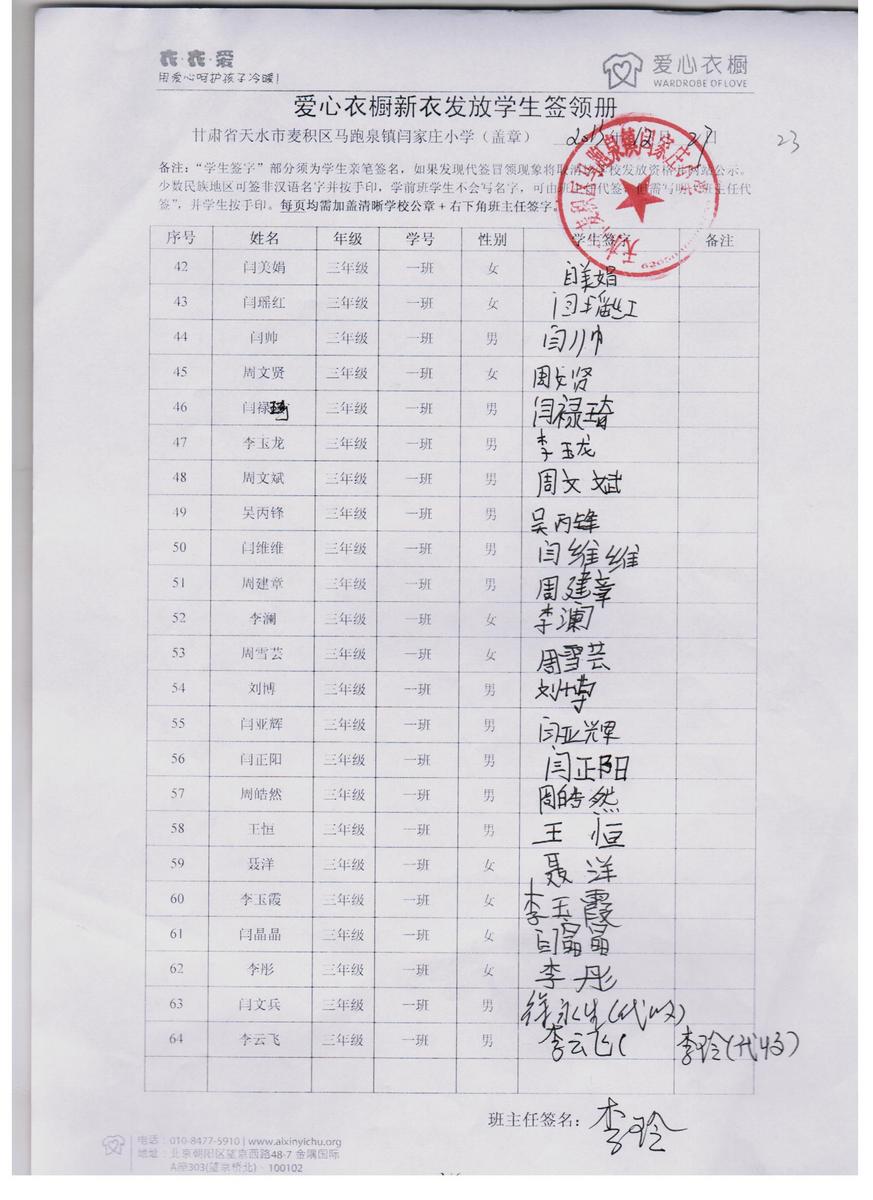 衣·衣·爱
用爱心呵护孩子冷暖!
爱心衣橱
WARDROBE OF LOVE
爱心衣橱新衣发放学生签领册
甘肃省天水市麦积区马跑泉镇闫家庄小学（盖章） 2015年12月27日 23
备注：“学生签字”部分须为学生亲笔签名，如果发现代签冒领现象将取消
少数民族地区可签非汉语名字并按手印，学前班学生不会写名字，可由班主任代签，但需写明“班主任代
签”，并学生按手印。每页均需加盖清晰学校公章+右下角班主任签字。
序号 姓名 年级 学号 性别 学生签字 备注
42 闫美娟 三年级 一班 女 闫美娟
43 闫瑶红 三年级 一班 女 闫瑶红
44 闫帅 三年级 一班 男 闫帅
45 周文贤 三年级 一班 女 周文贤
46 闫禄琦 三年级 一班 男 闫禄琦
47 李玉龙 三年级 一班 男 李玉龙
48 周文斌 三年级 一班 男 周文斌
49 吴丙锋 三年级 一班 男 吴丙锋
50 闫维维 三年级 一班 男 闫维维
51 周建章 三年级 一班 男 周建章
52 李澜 三年级 一班 女 李澜
53 周雪芸 三年级 一班 女 周雪芸
54 刘博 三年级 一班 男 刘博
55 闫亚辉 三年级 一班 男 闫亚辉
56 闫正阳 三年级 一班 男 闫正阳
57 周皓然 三年级 一班 男 周皓然
58 王恒 三年级 一班 男 王恒
59 聂洋 三年级 一班 女 聂洋
60 李玉霞 三年级 一班 女 李玉霞
61 闫晶晶 三年级 一班 女 闫晶晶
62 李彤 三年级 一班 女 李彤
63 闫文兵 三年级 一班 男 徐永生(代收)
64 李云飞 三年级 一班 男 李云飞( 李玲(代收)
班主任签名：李玲
电话：010-8477-5910 | www.aixinyichu.org
地址：北京朝阳区望京西路48-7 金隅国际
A座303(望京桥北)、100102